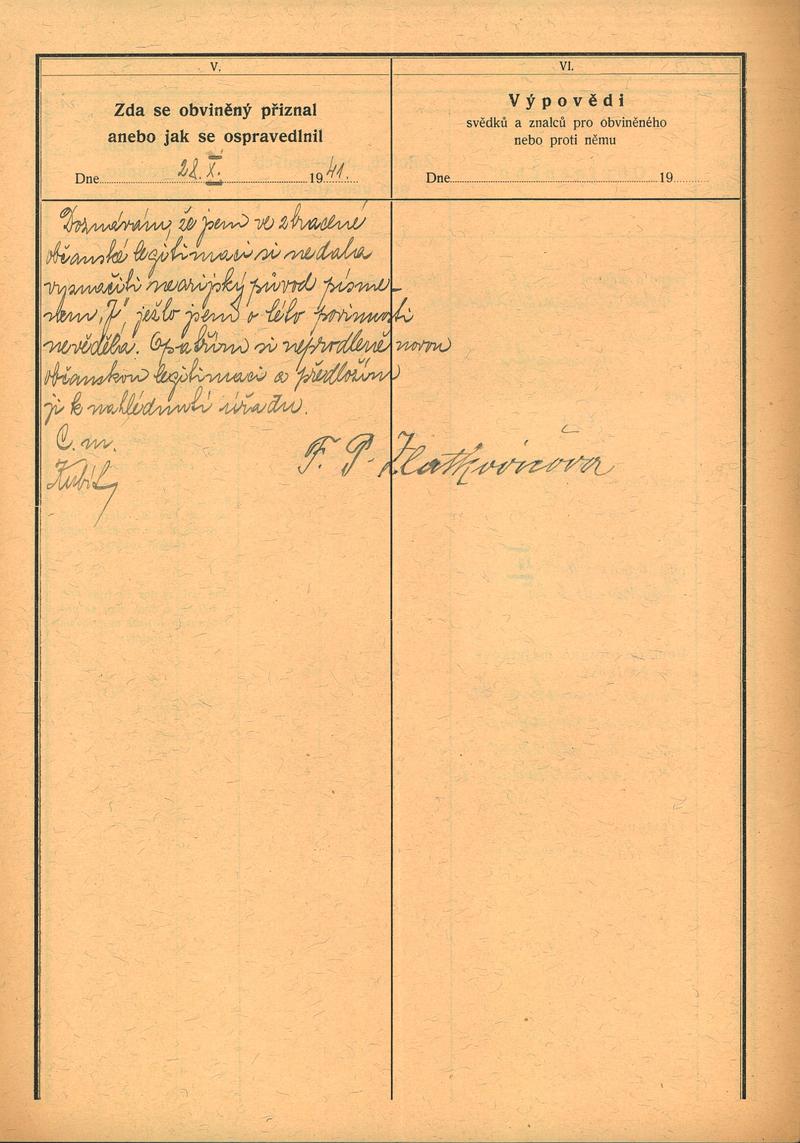 V.
Zda se obviněný přiznal
anebo jak se ospravedlnil
Dne 28. X. 1941.
VI.
Výpovědi
svědků a znalců pro obviněného
nebo proti němu
Dne 19
Doznávám, že jsem ve ztracené
občanské legitimaci si nedala
vyznačiti nearijský původ písme-
nem „J", ježto jsem o této povinnosti
nevěděla. Opatřím si neprodleně novou
občanskou legitimaci a předložím
ji k nahlédnutí úřadu.
C. m.
F. P. Zlatkovičová